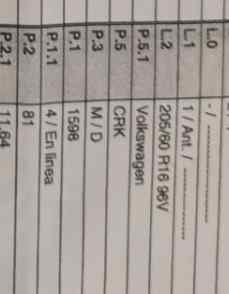 L.0 - / ______
L.1 1 / Ant. / ______
L.2 205/60 R16 96V
P.5.1 Volkswagen
P.5 CRK
P.3 M / D
P.1 1598
P.1.1 4 / En línea
P.2 81
P.2.1 11.64